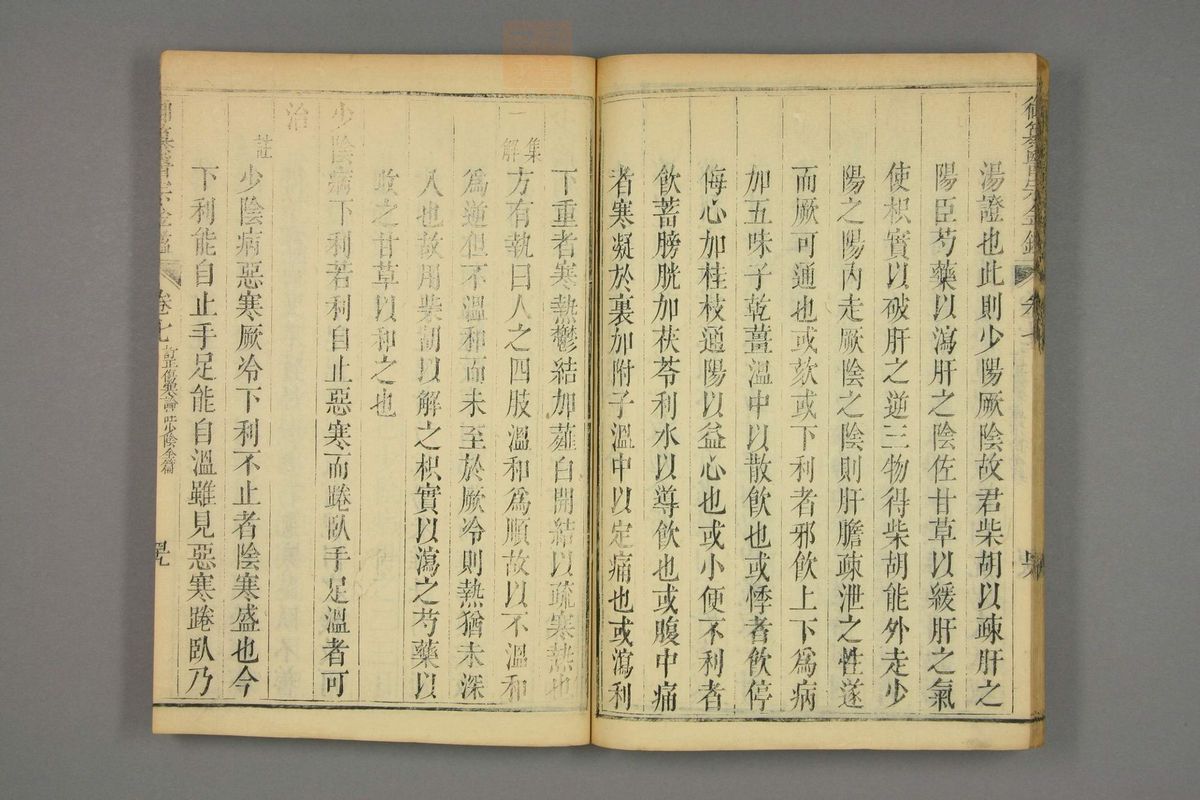 御纂醫宗金鑑 卷七
湯證也此則少陽厥陰故君柴胡以疎肝之
陽臣芍藥以瀉肝之陰佐甘草以緩肝之氣
使枳實以破肝之逆三物得柴胡能外走少
陽之陽內走厥陰之陰則肝膽疎泄之性遂
而厥可通也或欬或下利者邪飮上下爲病
加五味子乾薑溫中以散飮也或悸者飮停
侮心加桂枝通陽以益心也或小便不利者
飮蓄膀胱加茯苓利水以導飮也或腹中痛
者寒凝於裏加附子溫中以定痛也或瀉利
下重者寒熱鬱結加薤白開結以疏寒熱也
集解
方有執曰人之四肢溫和爲順故以不溫和
爲逆但不溫和而未至於厥冷則熱猶未深
入也故用柴胡以解之枳實以瀉之芍藥以
收之甘草以和之也
少陰病下利若利自止惡寒而踡臥手足溫者可
治
註
少陰病惡寒厥冷下利不止者陰寒盛也今
下利能自止手足能自溫雖見惡寒踡臥乃
御纂醫宗金鑑 卷七 訂正傷寒論註少陰全篇